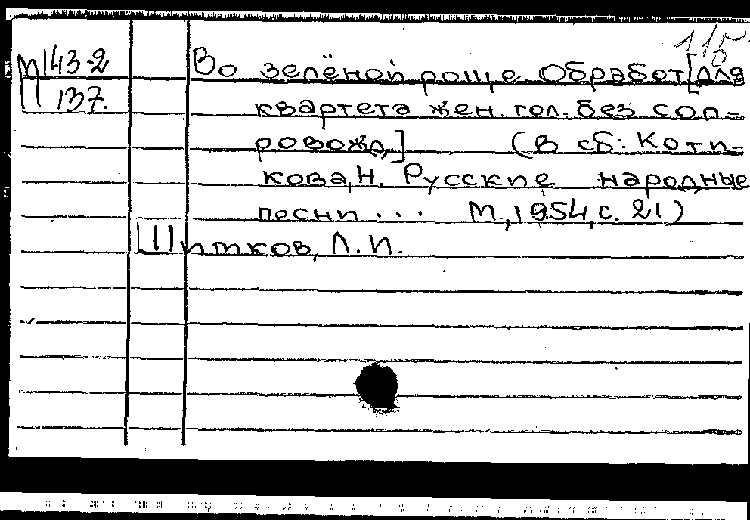 115
М143-2 Во зелёной роще. Обработ[для
137. квартета жен. гол. без соп-
ровожд.] (В сб: Коти-
кова, Н. Русские народные
песни... М, 1954, с. 21)
Шитков, Л. И.